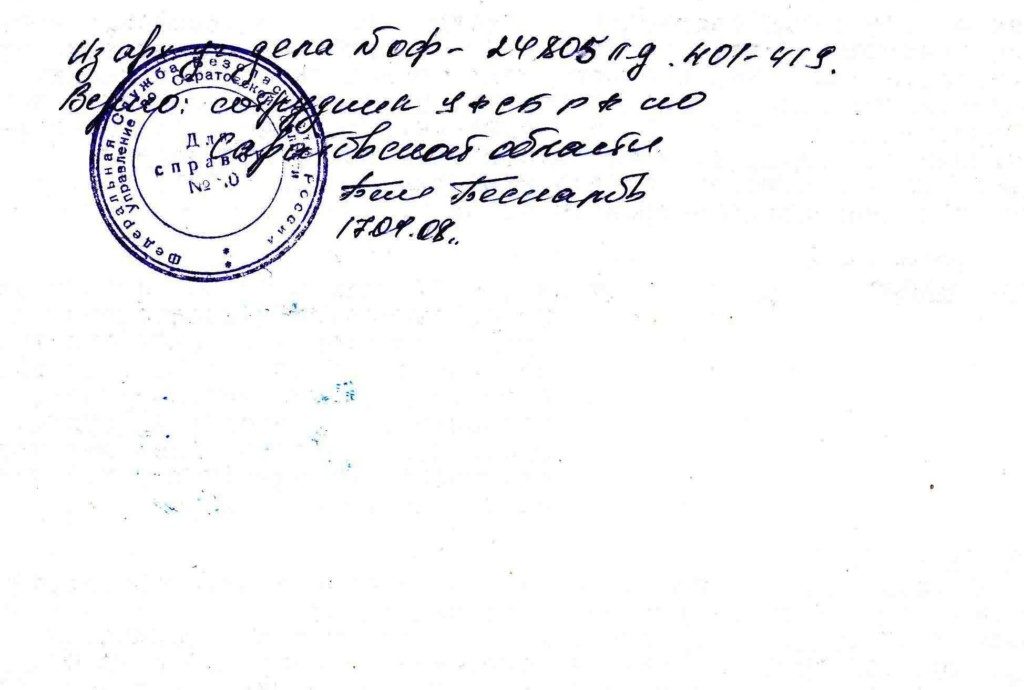 Из арх. уг. дела № оф-24805 т.д. 401-419.
Верно: сотрудник УФСБ РФ по
Саратовской области
17.04.08.
Федеральная Служба Безопасности России
Управление по Саратовской области
Для
справок